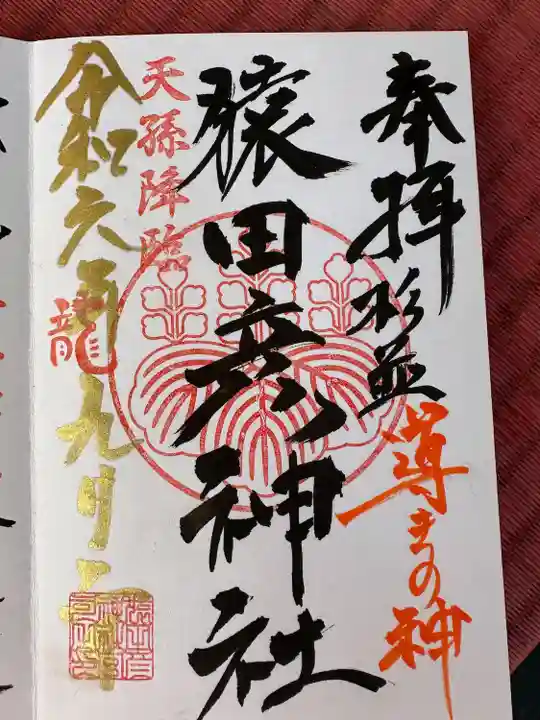 奉拝
杉並
導きの神
猿田彦神社
天孫降臨
令和六年九月
龍